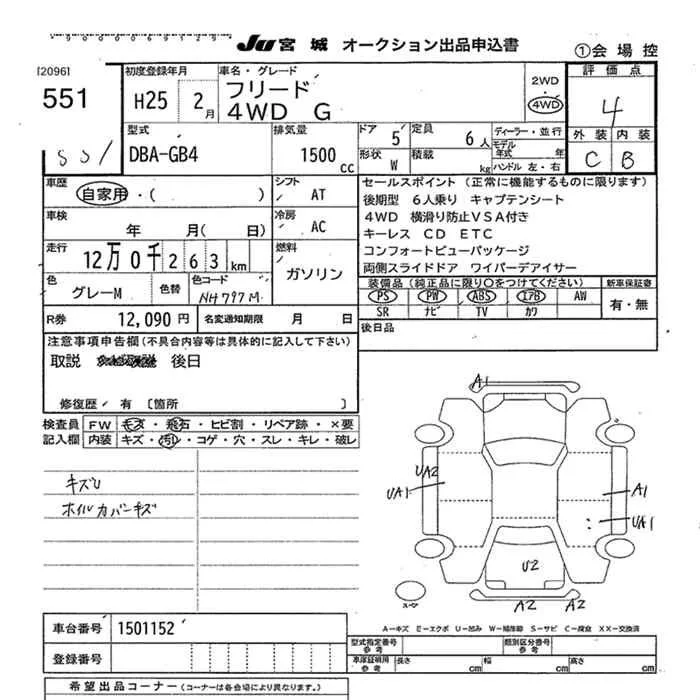 JU 宮城 オークション出品申込書
①会場控
[2096]
551
551
初度登録年月
H25 2月
車名・グレード
フリード
4WD G
2WD
・
4WD
評価点
4
外装 内装
C B
型式
DBA-GB4
排気量
1500 cc
ドア 5
定員 6人
ディーラー・並行
モデル年式 年
形状 W
積載 kg
ハンドル 左・右
車歴
自家用・( )
シフト
AT
車検
年 月( 日)
冷房
AC
走行
12万0千263km
燃料
ガソリン
色
グレーM
色替
色コード
NH797M
R券 12,090円
名変通知期限 月 日
セールスポイント (正常に機能するものに限ります)
後期型 6人乗り キャプテンシート
4WD 横滑り防止VSA付き
キーレス CD ETC
コンフォートビューパッケージ
両側スライドドア ワイパーデアイサー
装備品(純正品に限り○をつけてください)
新車保証書
PS PW ABS エアB AW
SR ナビ TV カワ
有・無
後日品
注意事項申告欄(不具合内容等は具体的に記入して下さい)
取説 後日
修復歴・有 〔箇所 〕
検査員 FW キズ・飛石・ヒビ割・リペア跡・×要
記入欄 内装 キズ・汚れ・コゲ・穴・スレ・キレ・破レ
キズU
ホイルカバーキズ
A1
UA2
UA1
A1
UA1
U2
A2 A2
スペア
A―キズ E―エクボ U―凹み W―補修跡 S―サビ C―腐食 XX―交換済
車台番号 1501152
登録番号
型式指定番号 参考
類別区分番号 参考
車庫証明用 参考
長さ cm
幅 cm
高さ cm
希望出品コーナー (コーナーは各会場により異なります。)